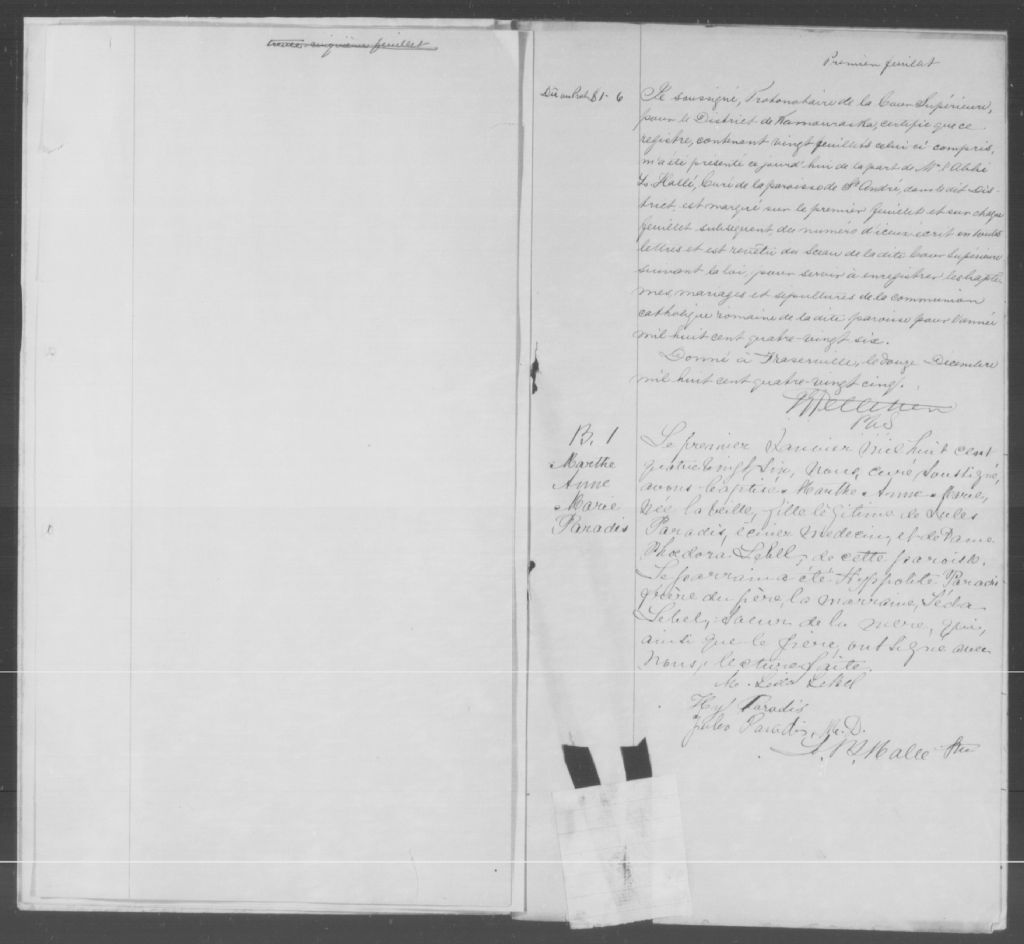 cinquième feuillet
Premier feuillet
Je soussigné, Protonotaire de la Cour Supérieure,
pour le District de Kamouraska, certifie que ce
registre, contenant vingt feuillets celui ci compris,
m'a été présenté ce jourd'hui de la part de Mr l'Abbé
Hallé, Curé de la paroisse de St André, dans le dit Dis-
trict, est marqué sur le premier feuillet et sur chaque
feuillet subséquent, du numéro d'iceux écrit en toutes
lettres et est revêtu du Sceau de la dite Cour Supérieure
suivant la loi, pour servir à enregistrer les baptê-
mes, mariages et sépultures de la communion
catholique romaine de la dite paroisse pour l'année
mil huit cent quatre-vingt six.
Donné à Fraserville, le douze Décembre
mil huit cent quatre-vingt cinq.
Pelletier
B. 1
Marthe
Anne
Marie
Paradis
Le premier Janvier mil huit cent
quatrevingt six, nous, curé, soussigné,
avons baptisé Marthe Anne Marie,
née la veille, fille légitime de Jules
Paradis, écuier médecin, et de Dame
Phoedora Lebel, de cette paroisse.
Le parrain a été Hyppolite Paradis
frère du père, la marraine, Léda
Lebel, soeur de la mère, qui,
ainsi que le père, ont signé avec
nous, lecture faite.
M. Léda Lebel
Hyp Paradis
Jules Paradis, M.D.
Hallé Ptre